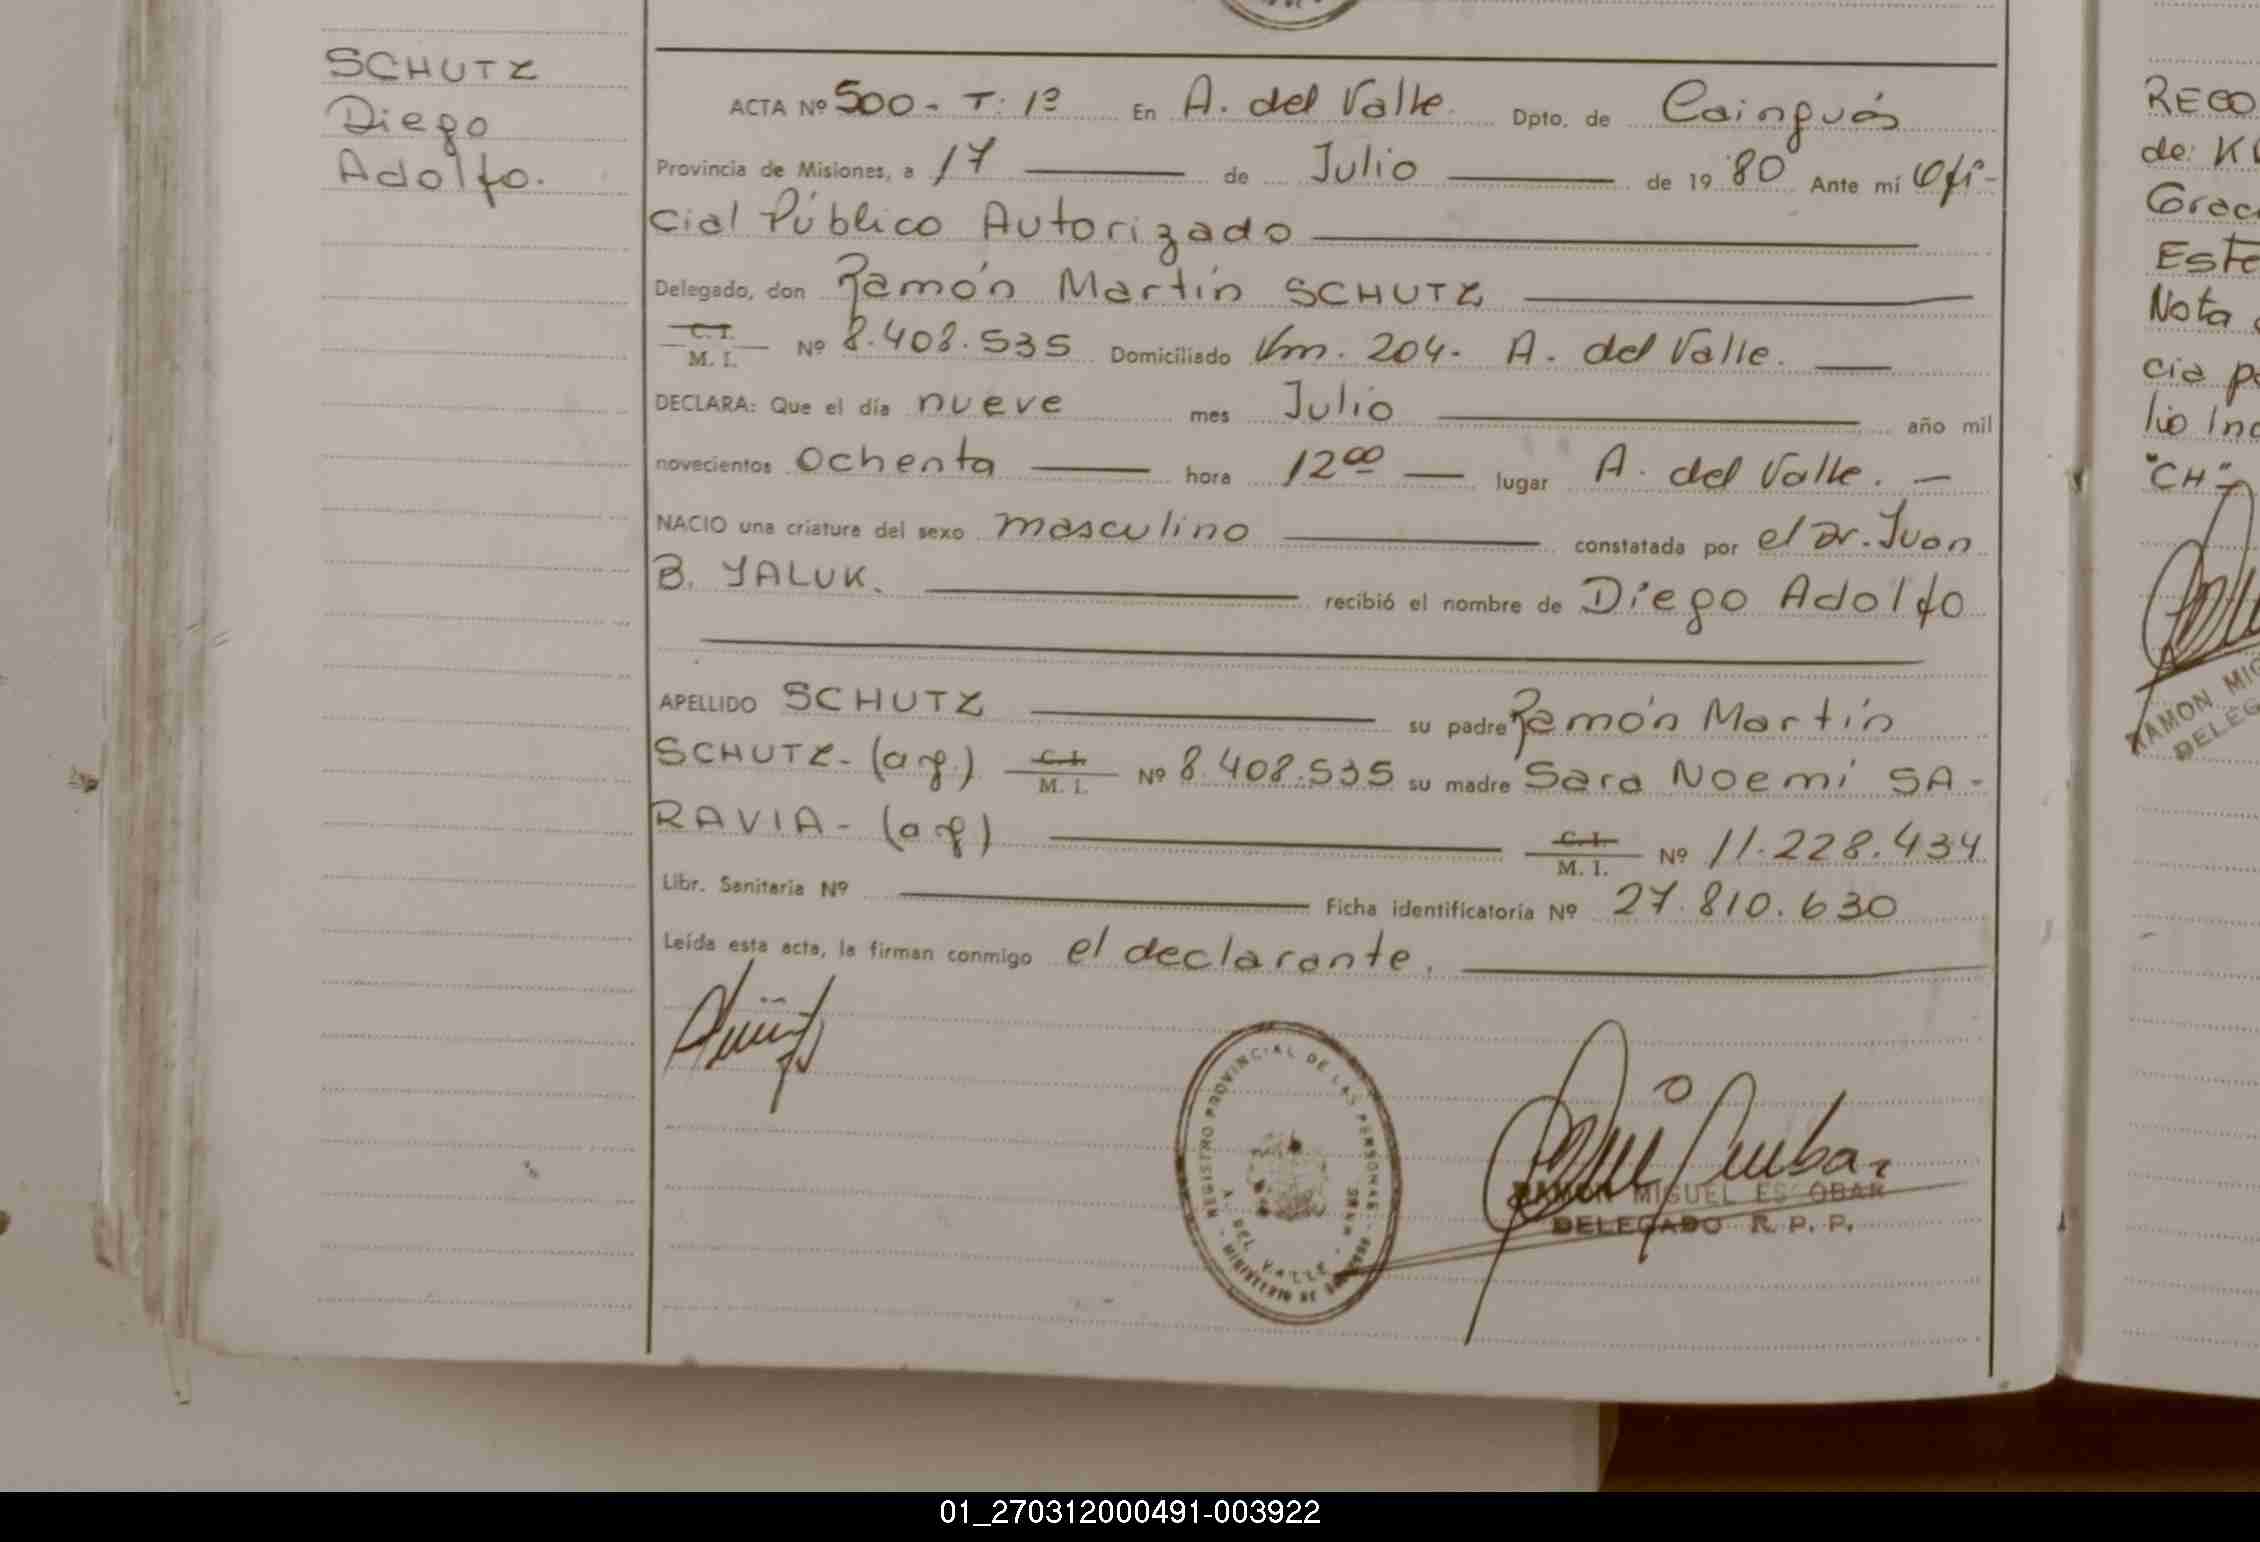 SCHUTZ
Diego
Adolfo.
ACTA Nº 500 - T. 1º En A. del Valle. Dpto. de Cainguás
Provincia de Misiones, a 17 de Julio de 1980 Ante mí Ofi-
cial Público Autorizado
Delegado, don Ramón Martín SCHUTZ
C. I.
M. I. Nº 8.408.535 Domiciliado Km. 204. A. del Valle.
DECLARA: Que el día nueve mes Julio año mil
novecientos ochenta hora 12 00 lugar A. del Valle. -
NACIO una criatura del sexo masculino constatada por el Dr. Juan
B. YALUK. recibió el nombre de Diego Adolfo
APELLIDO SCHUTZ su padre Ramón Martín
SCHUTZ - (arg.) C. I. M. I. Nº 8.408.535 su madre Sara Noemí SA-
RAVIA - (arg) C. I. M. I. Nº 11.228.434
Libr. Sanitaria Nº Ficha identificatoria Nº 27.810.630
Leída esta acta, la firman conmigo el declarante.
REGISTRO PROVINCIAL DE LAS PERSONAS
A. DEL VALLE
RAMON MIGUEL ESCOBAR
DELEGADO R. P. P.
RECO
de: K
Grac
Este
Nota
cia p
lio Ind
"CH"
RAMON MIG
DELEG
01_270312000491-003922